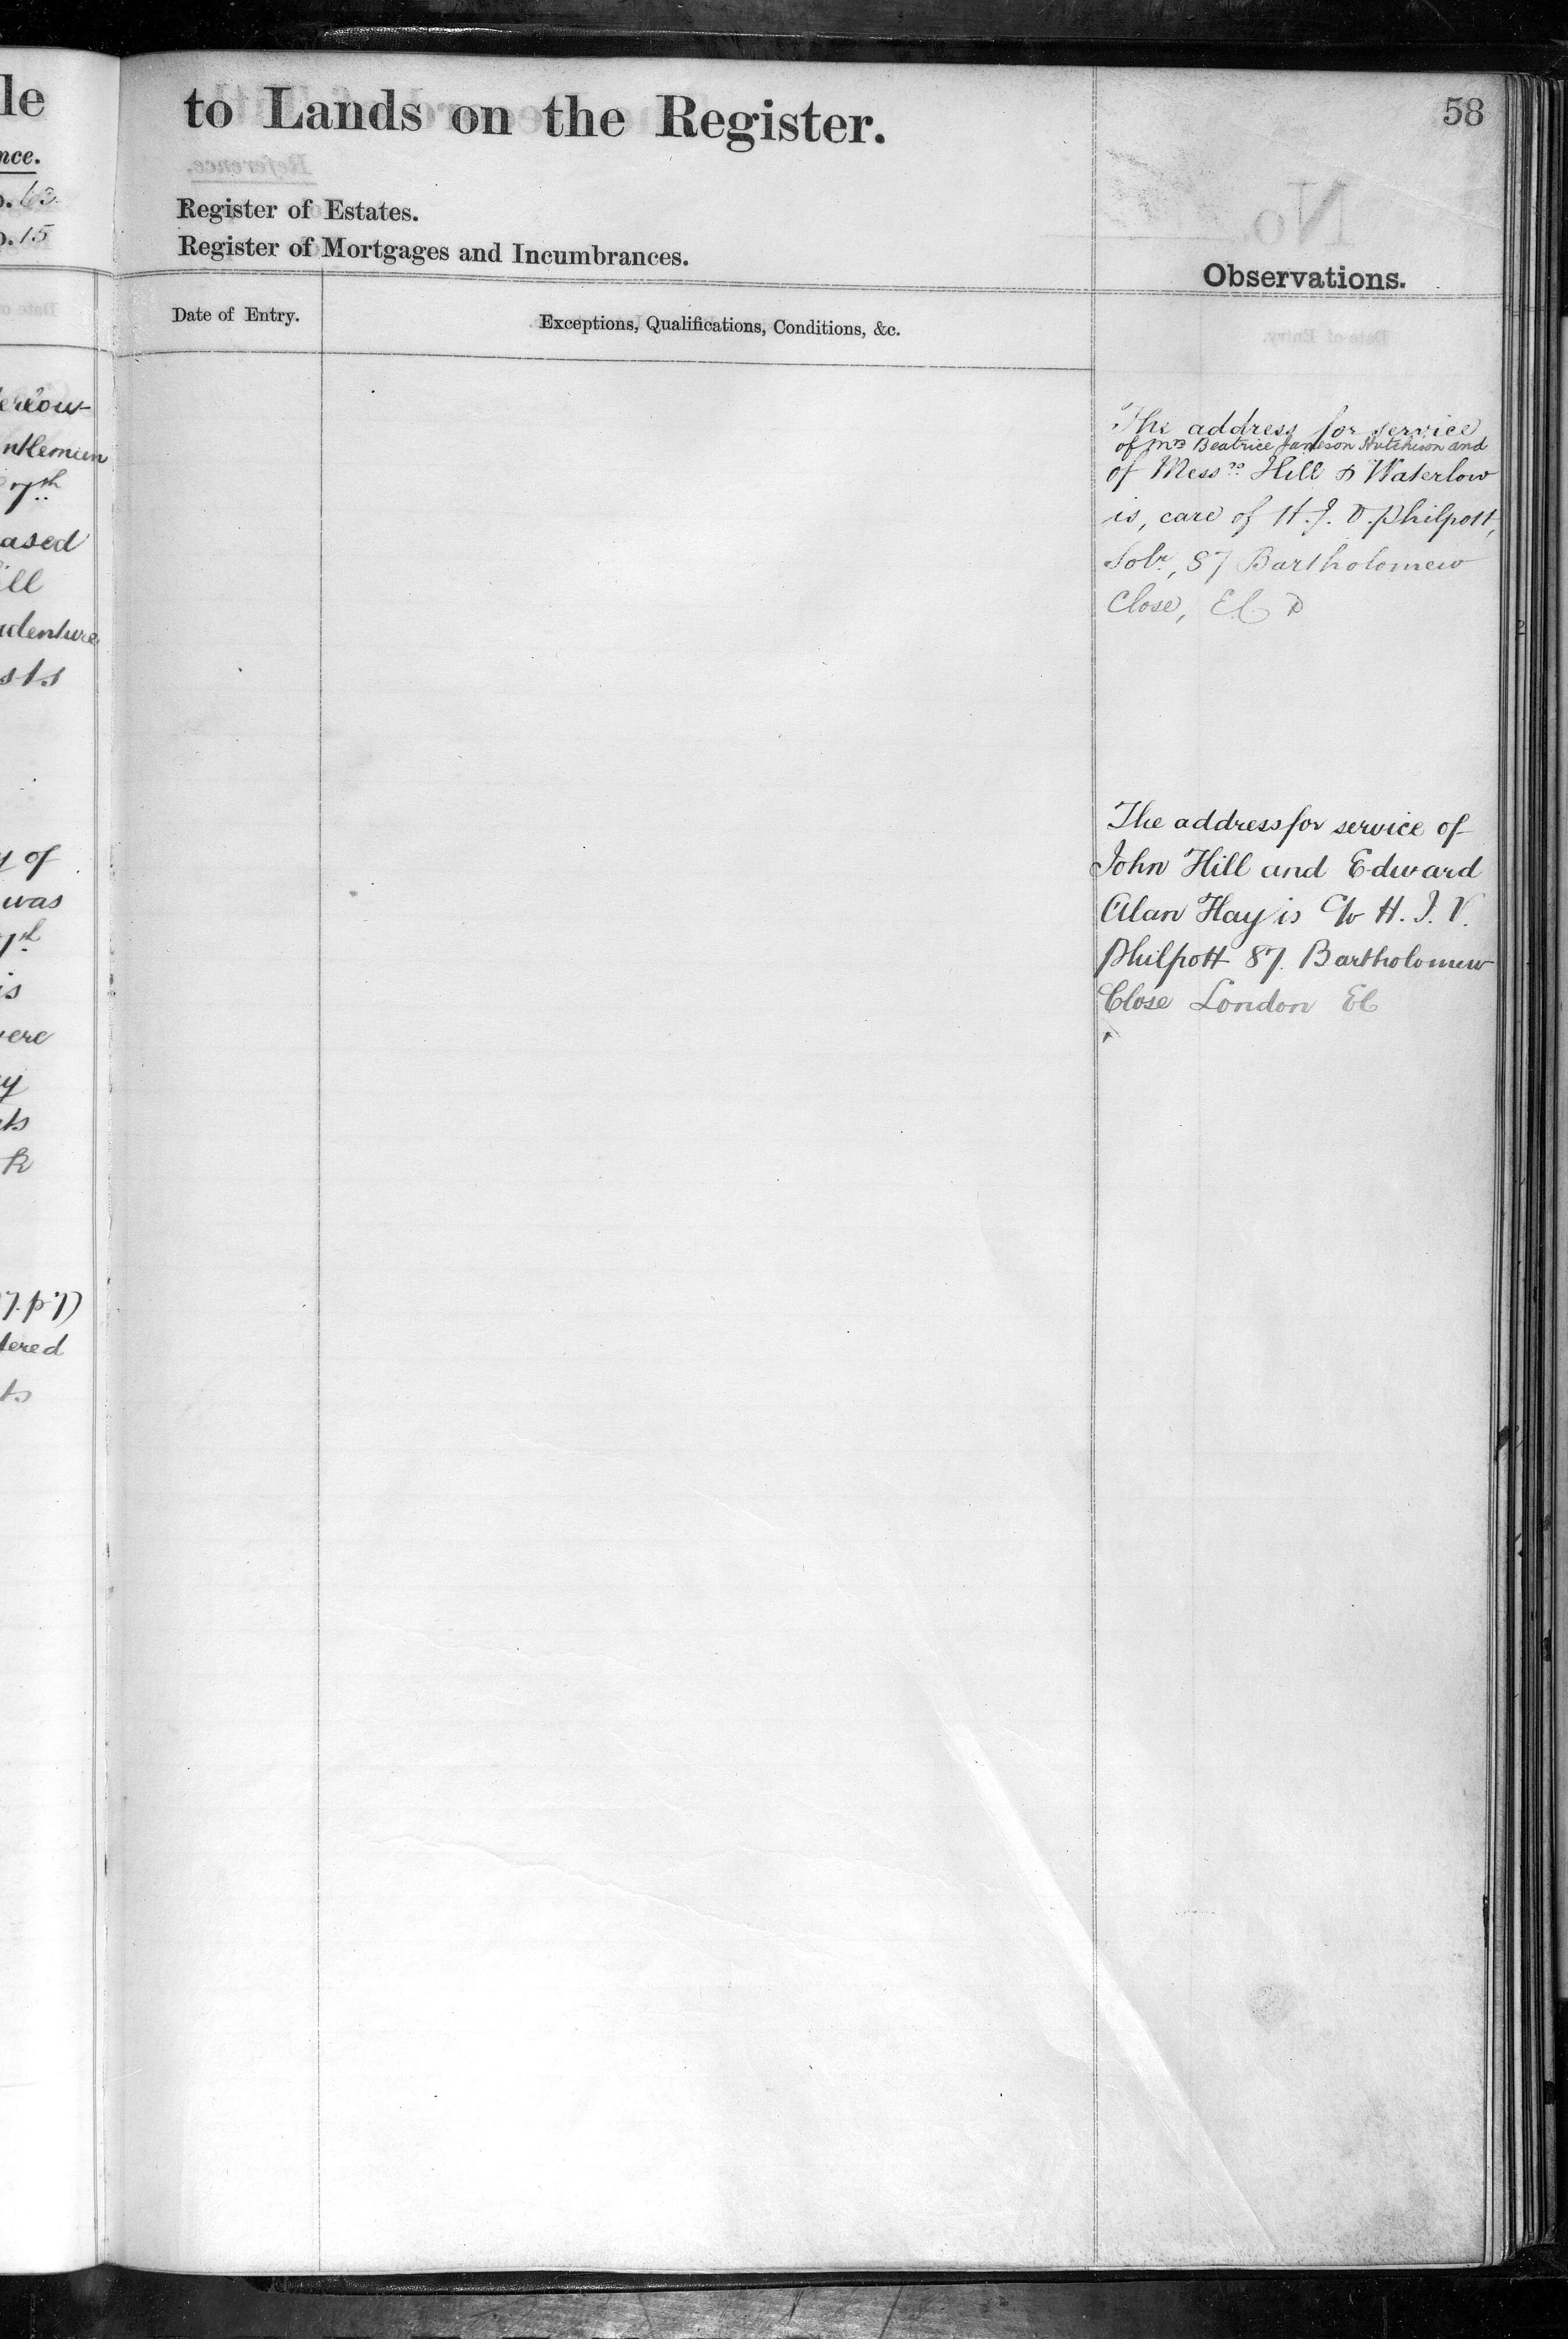 le
nce.
o. 63.
o. 15
erlow
ntlemen
7th
ased
ill
ndenture
sts
y of
was
7th
is
vere
ay
ts
k
7.p.7)
tered
ts
58
to Lands on the Register.
Register of Estates.
Register of Mortgages and Incumbrances.
Observations.
Date of Entry.
Exceptions, Qualifications, Conditions, &c.
The address for service
of Mrs Beatrice Jameson Hutchison and
of Messrs Hill & Waterlow
is, care of H. J. V. Philpott,
Solr, 87 Bartholomew
Close, EC
The address for service of
John Hill and Edward
Alan Hay is c/o H. J. V.
Philpott 87. Bartholomew
Close London EC